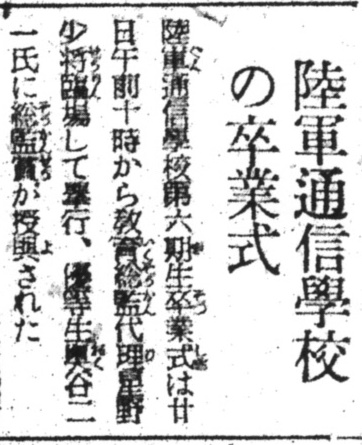 陸軍通信學校
の卒業式
陸軍通信學校第六期生卒業式は廿
日午前十時から敎育總監代理星野
少將臨場して擧行、優等生奧谷二
一氏に總監賞が授與された